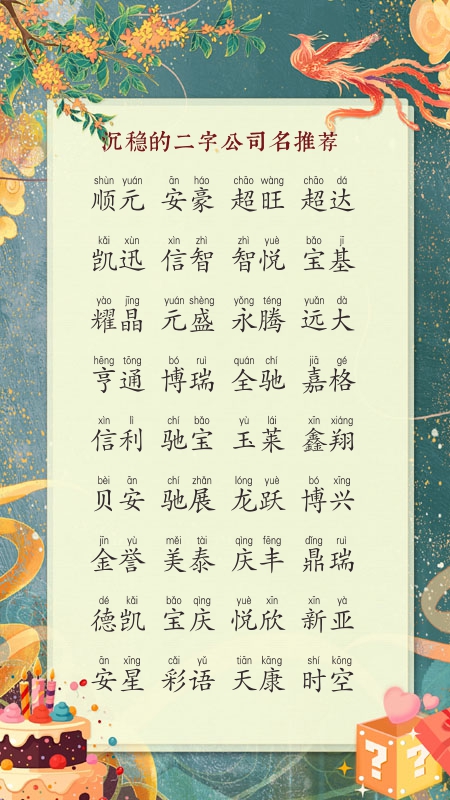 沉稳的二字公司名推荐
shùn yuán ān háo chāo wàng chāo dá
顺元 安豪 超旺 超达
kǎi xùn xìn zhì zhì yuè bǎo jī
凯迅 信智 智悦 宝基
yào jīng yuán shèng yǒng téng yuǎn dà
耀晶 元盛 永腾 远大
hēng tōng bó ruì quán chí jiā gé
亨通 博瑞 全驰 嘉格
xìn lì chí bǎo yù lái xīn xiáng
信利 驰宝 玉莱 鑫翔
bèi ān chí zhǎn lóng yuè bó xīng
贝安 驰展 龙跃 博兴
jīn yù měi tài qìng fēng dǐng ruì
金誉 美泰 庆丰 鼎瑞
dé kǎi bǎo qìng yuè xīn xīn yà
德凯 宝庆 悦欣 新亚
ān xīng cǎi yǔ tiān kāng shí kōng
安星 彩语 天康 时空
? ?